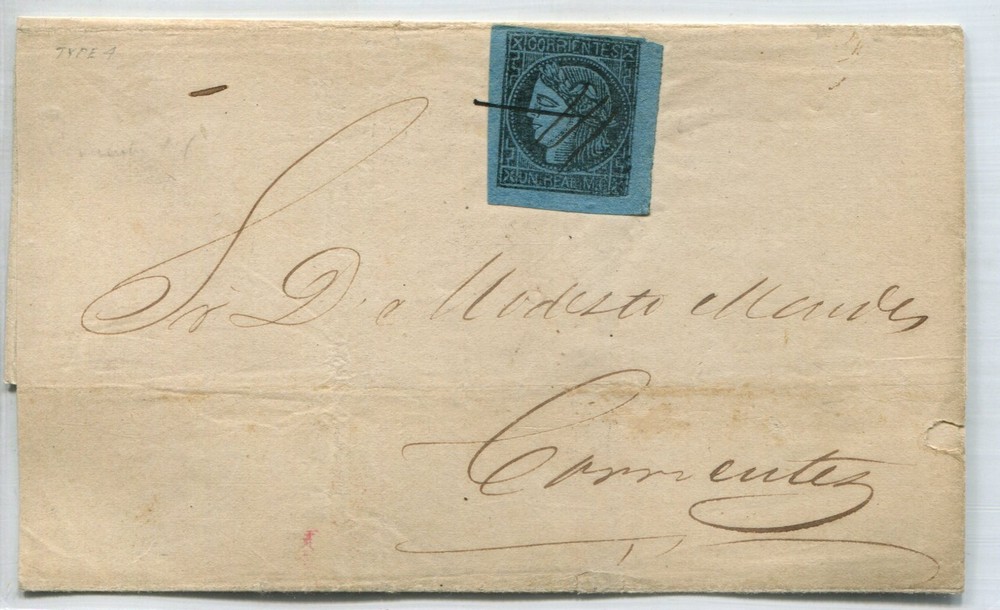 TYPE 4
CORRIENTES
UN REAL M.C.
Sr D.n Modesto Mendes
Corrientes